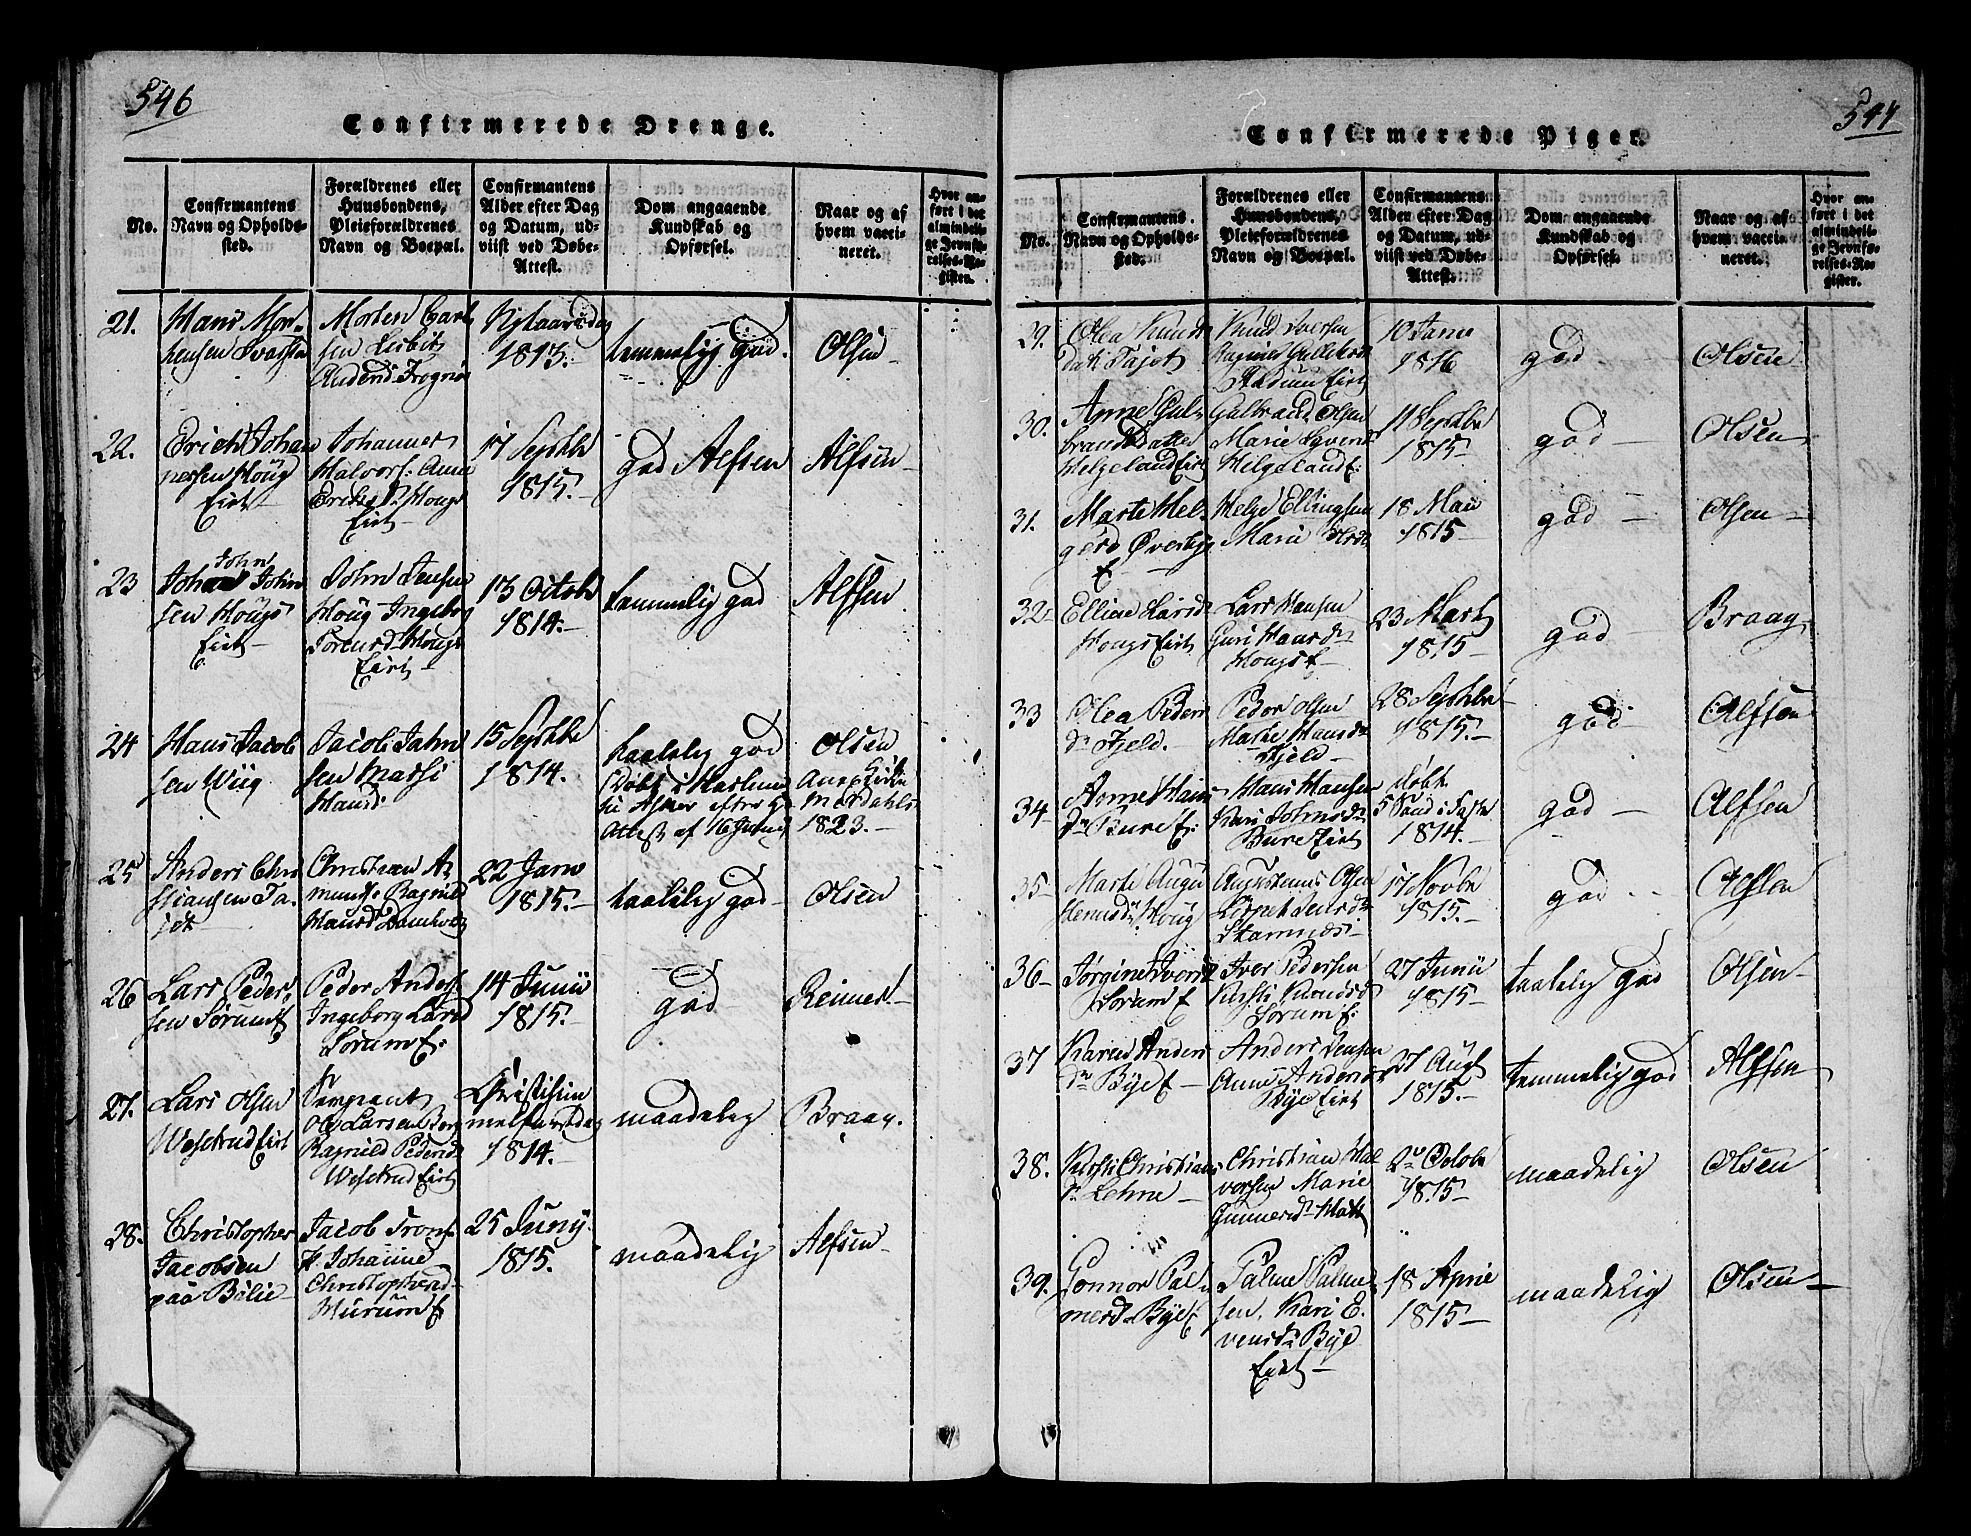 546
Confirmerede Drenge.
No.
Confirmantens
Navn og Opholds-
sted.
Forældrenes eller
Huusbondens,
Pleieforældrenes
Navn og Boepæl.
Confirmantens
Alder efter Dag
og Datum, ud-
viist ved Døbe-
Attest.
Dom angaaende
Kundskab og
Opførsel.
Naar og af
hvem vacci-
neret.
Hvor an-
ført i det
almindeli-
ge Jevnfø-
relses-Re-
gister.
21.
Hans Mor-
tensen
Morten Carl
sen Lisbet
Anders
Nytaarsdag
1813.
temmelig god.
Olsen
22.
Erich Johan
nessen Houg
Eiet
Johannes
Halvors: Anne
Houg
Eiet
17 Septbr
1815.
god Alfsen
Alfsen
23
John
John
sen Hougs
Eiet
John Jensen
Houg Ingeborg
Hougs
Eiet
13 Octobr
1814.
temmelig god
Alfsen
24
Hans Jacob
sen Wiig
Jacob Jahn
sen
Hansd
15 Septbr
1814.
taalelig god
Døbt i
Attest af 16 Juny
Olsen
1823.
25
Anders Chri
stiansen Ta
jet
Christian A
munds Ragnild
Hansd
22 Janu
1815.
taalelig god
Olsen
26
Lars Peder
sen Sørum
Peder Anders
Ingeborg Larsd
Sørum E.
14 Junii
1815.
god
Reimers
27.
Lars Olsen
Weseterud Eiet
Sergeant
Ole Larsen
Ragnild Pedersd
Weseterud Eiet
Christi Him
melfartsdag
1814.
maadelig
Braag.
28.
Christopher
Jacobsen
paa Bølie
Jacob
Johanne
Christophersd
Wurum E
25 Juny
1815.
maadelig
Alfsen
547
Confirmerede Piger.
No.
Confirmantens
Navn og Opholds-
sted.
Forældrenes eller
Huusbondens,
Pleieforældrenes
Navn og Boepæl.
Confirmantens
Alder efter Dag
og Datum, ud-
viist ved Døbe-
Attest.
Dom angaaende
Kundskab og
Opførsel.
Naar og af
hvem vacci-
neret.
Hvor an-
ført i det
almindeli-
ge Jevnfø-
relses-Re-
gister.
29.
Olea Knuds
datr Tajet
Knud Iversen
Ragnild
Eiet
10 Janu
1816
god
Olsen
30.
Anne Gul-
brandsdatter
Helgeland Eiet
Gulbrand Olsen
Marie
Helgeland E.
11 Septbr
1815
god
Olsen
31.
Marte Hel-
gesd Øverby
E
Helge Ellingsen
Marie
18 Mai
1815
god
Olsen
32
Eline Larsd
Hougs Eiet
Lars Hansen
Guri Hansdr
Hougs E
23 Marts
1815
god
Braag
33
Olea Peders
dr Fjeld.
Peder Olsen
Marte Hansdr
Fjeld
28 Septbr
1815
god
Alfsen
34
Anne Hans
dr Bure E.
Hans Hansen
Kari Johnsdr
Bure Eiet
døbt
5 Sønd i Faste
1814.
god
Alfsen
35
Marte Augu
stenusdr Houg
Augustenus Olsen
Stamnæs
17 Novbr
1815.
god
Alfsen
36
Jørgine Iversd
Sørum E
Iver Pedersen
Kirsti Knudsd
Sørum E.
27 Junii
1815
taalelig god
Olsen
37
Karen Anders
dr Bye E
Anders Jensen
Anne Andersdr
Bye Eiet
27 Augt
1815.
temmelig god
Alfsen
38.
Kirsti Christians
dr Lehne
Christian Hal
vorsen Marie
Gunnersdr
2 Octobr
1815
maadelig
Olsen
39.
Gonnor Pal
mersd Bye E
Palme Palme
sen, Kari E.
vensdr Bye
Eiet
18 April
1815
maadelig
Olsen